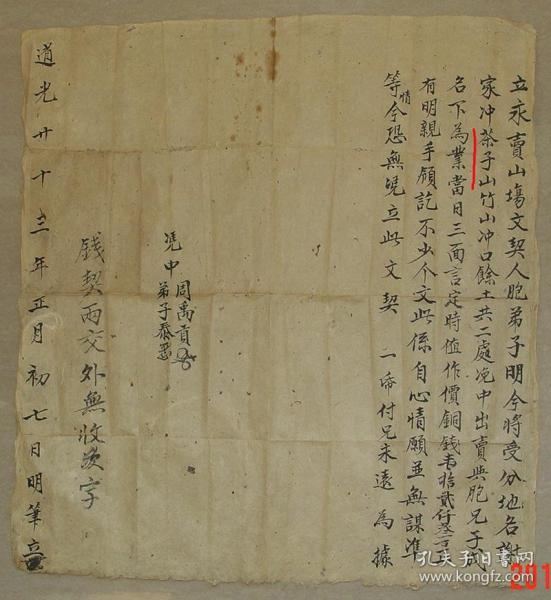 立永賣山塲文契人胞弟子明今將受分地名謝
家冲茶子山竹山冲口餘土共二處凴中出賣與胞兄子成
名下為業當日三面言定時值作價銅錢拾貳仟叁
有明親手領訖不少个文此係自心情願並無謀準
等情今恐無凴立此文契一帋付兄永遠為據
凴中周禹貢
弟子泰
錢契兩交外無收炭字
道光廿十三年正月初七日明筆立
孔夫子旧书网
www.kongfz.com
201